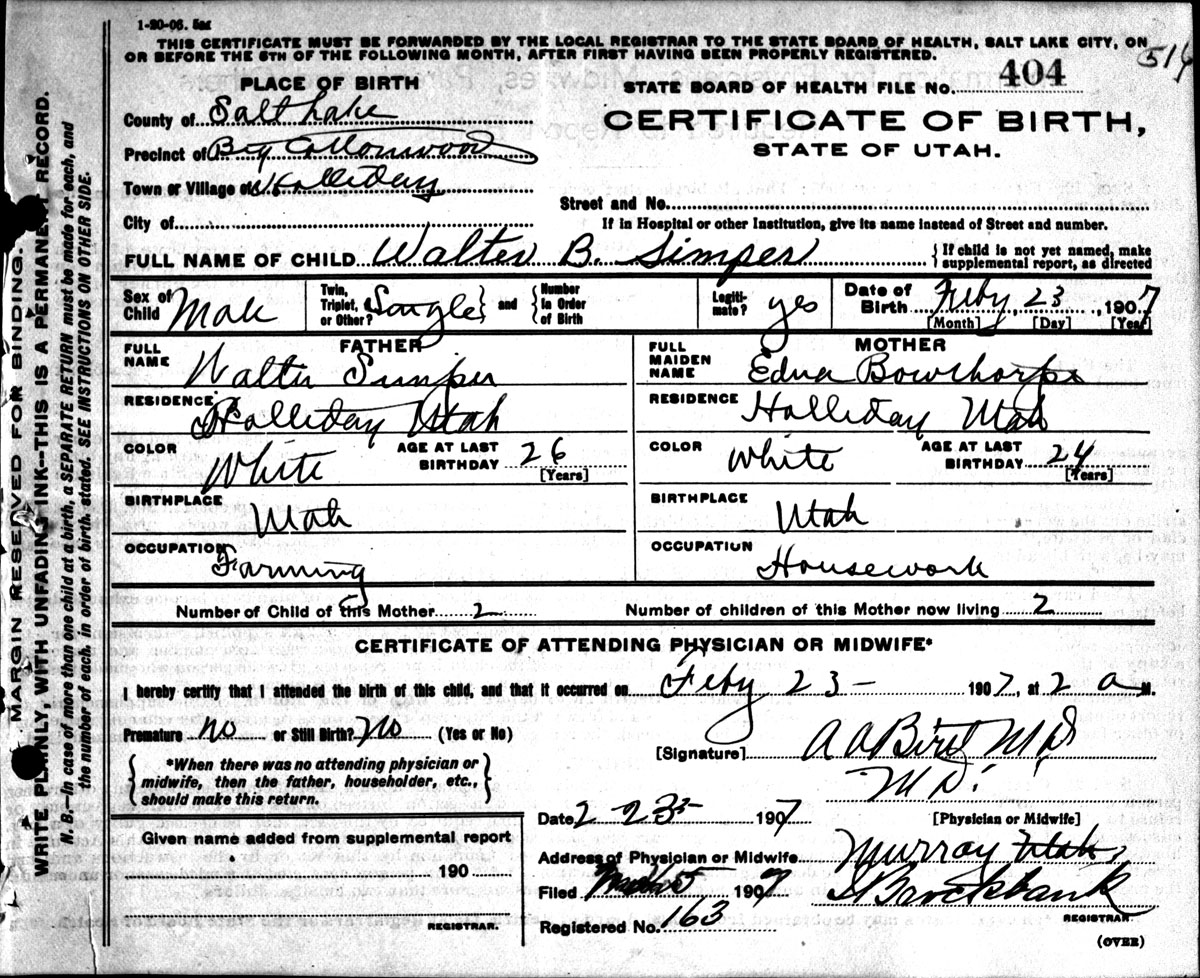 1-20-06. 5M
THIS CERTIFICATE MUST BE FORWARDED BY THE LOCAL REGISTRAR TO THE STATE BOARD OF HEALTH, SALT LAKE CITY, ON
OR BEFORE THE 5TH OF THE FOLLOWING MONTH, AFTER FIRST HAVING BEEN PROPERLY REGISTERED.
PLACE OF BIRTH
STATE BOARD OF HEALTH FILE NO. 404
County of Salt Lake
CERTIFICATE OF BIRTH,
Precinct of Big Cottonwood
STATE OF UTAH.
Town or Village of Holliday
Street and No.
City of
If in Hospital or other Institution, give its name instead of Street and number.
FULL NAME OF CHILD Walter B. Simper {If child is not yet named, make supplemental report, as directed
Sex of Child Male Twin, Triplet, or Other? {Single} and {Number in Order of Birth Legitimate? yes Date of Birth Feby 23, 1907
[Month] [Day] [Year]
FATHER
MOTHER
FULL NAME Walter Simper
FULL MAIDEN NAME Edna Bowthorpe
RESIDENCE Holliday Utah
RESIDENCE Holliday Utah
COLOR White AGE AT LAST BIRTHDAY 26 [Years]
COLOR White AGE AT LAST BIRTHDAY 24 [Years]
BIRTHPLACE Utah
BIRTHPLACE Utah
OCCUPATION Farming
OCCUPATION Housework
Number of Child of this Mother 2 Number of children of this Mother now living 2
CERTIFICATE OF ATTENDING PHYSICIAN OR MIDWIFE*
I hereby certify that I attended the birth of this child, and that it occurred on Feby 23 - 1907, at 2 a M.
Premature No or Still Birth? No (Yes or No)
[Signature] A A Bird M D
M D.
{*When there was no attending physician or midwife, then the father, householder, etc., should make this return.}
Date 2 23 1907 [Physician or Midwife]
Given name added from supplemental report
190
REGISTRAR.
Address of Physician or Midwife Murray Utah,
Filed 1907 Brockbank
REGISTRAR.
Registered No. 163
(OVER)
MARGIN RESERVED FOR BINDING.
WRITE PLAINLY, WITH UNFADING INK—THIS IS A PERMANENT RECORD.
N. B.—In case of more than one child at a birth, a SEPARATE RETURN must be made for each, and
the number of each, in order of birth, stated. SEE INSTRUCTIONS ON OTHER SIDE.